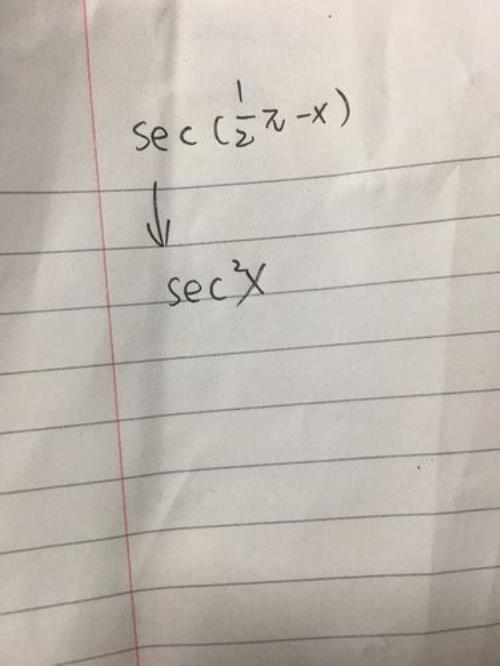 sec(½π-x)
↓
sec²x